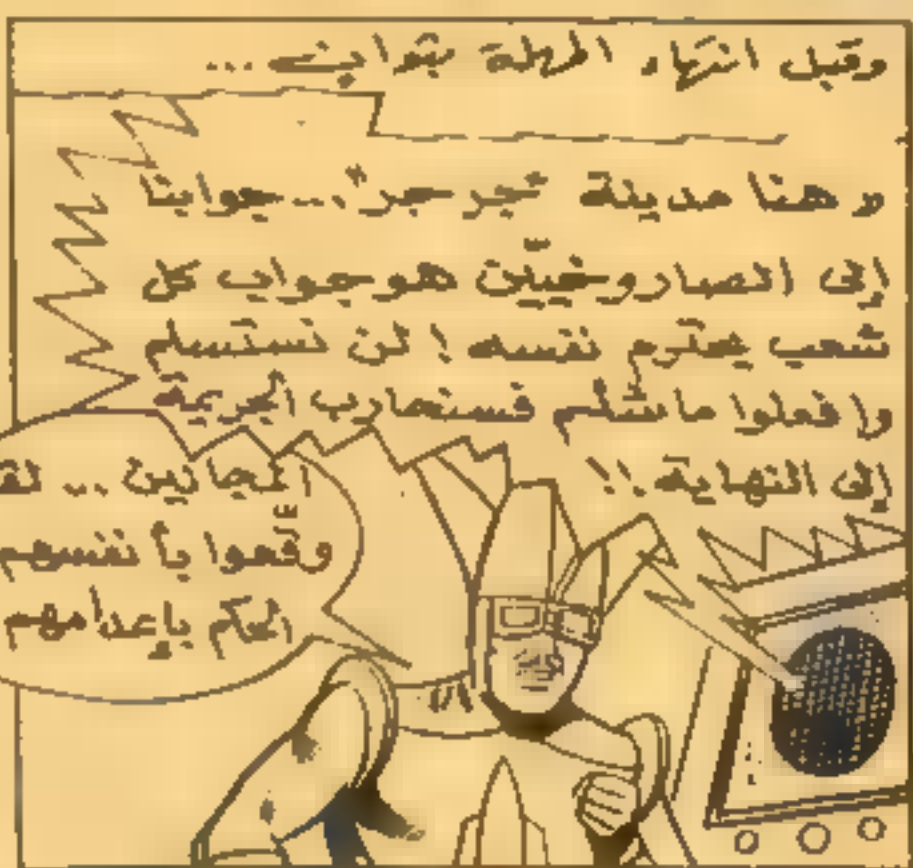 وقبل انتهاء المهلة بثوانٍ...
" هنا مدينة "جرجر"... جوابنا
إلى الصاروخيّين هو جواب كل
شعب يحترم نفسه ! لن نستسلم
وافعلوا ما شئتم فسنحارب الجريمة
إلى النهاية !!"
المجانين .. لقد
وقّعوا بأنفسهم
الحكم بإعدامهم